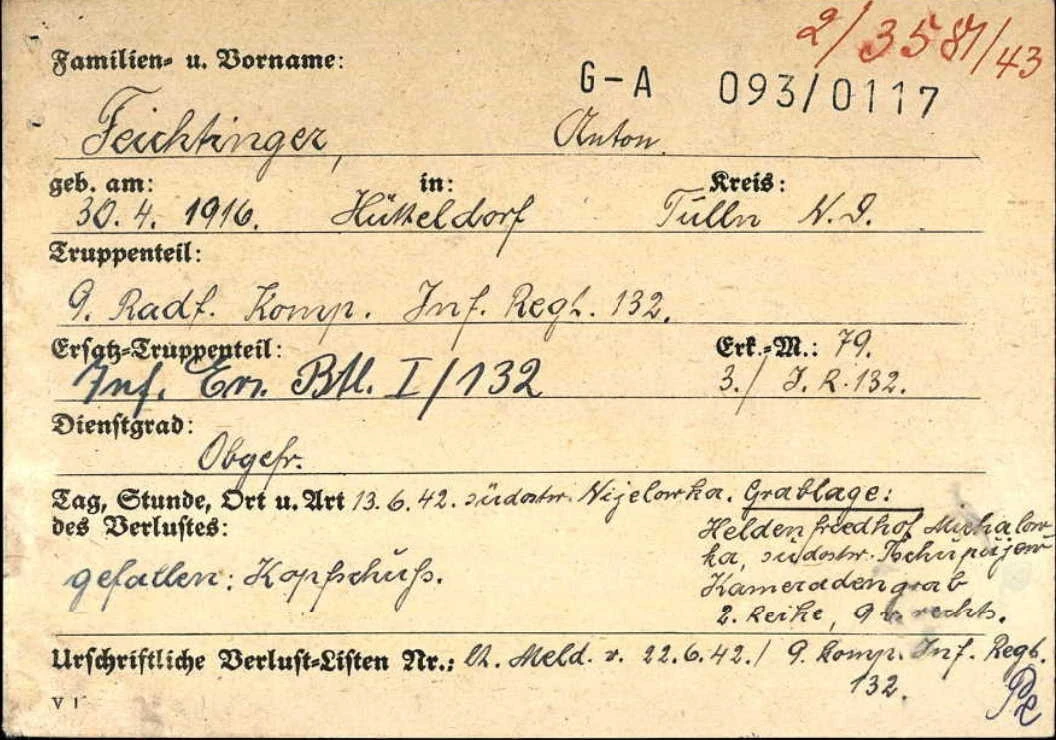 2/3587/43
Familien- u. Vorname:
G-A 093/0117
Feichtinger, Anton.
geb. am: in: Kreis:
30. 4. 1916. Hütteldorf Tulln N. D.
Truppenteil:
9. Radf. Komp. Inf. Regt. 132.
Ersatz-Truppenteil: Erk.-M.: 79.
Inf. Ers. Btl. I/132 3./ I. R. 132.
Dienstgrad:
Obgefr.
Tag, Stunde, Ort u. Art 13.6.42. südostw. Nijelowka. Grablage:
des Verlustes: Heldenfriedhof Michalow-
ka, südostw. Tschupujew
gefallen: Kopfschuß. Kameradengrab
2. Reihe, 9 v. rechts.
Urschriftliche Verlust-Listen Nr.: lt. Meld. v. 22.6.42./ 9. Komp. Inf. Regt.
132.
V 1